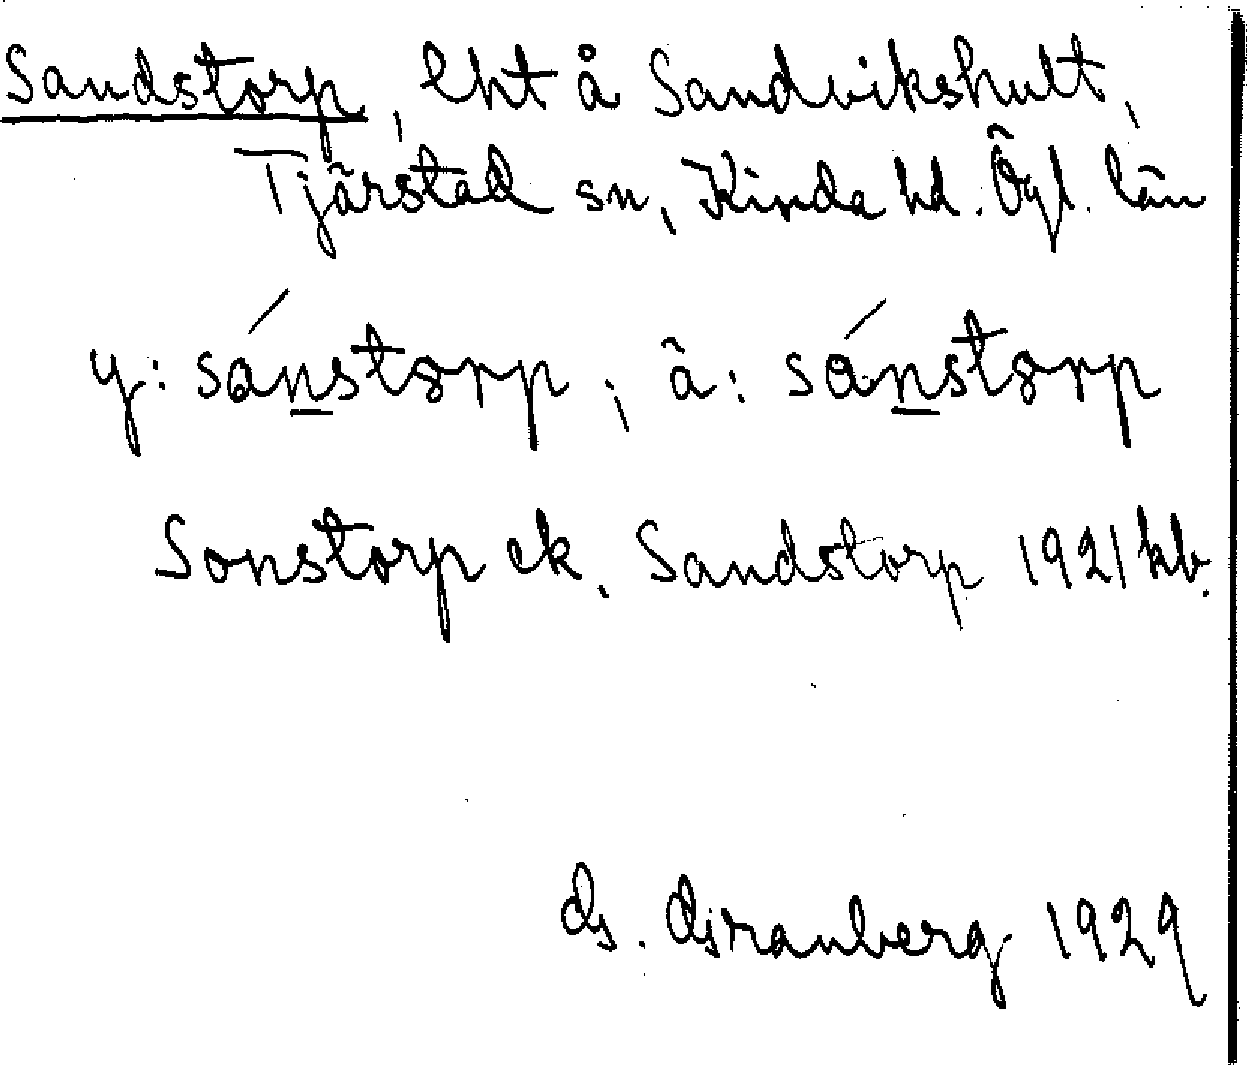 Sandstorp, lht å Sandvikshult,
Tjärstad sn, Kinda hd. Ögl. län
y: sánstorp; ä: sánstorp
Sonstorp ek. Sandstorp 1921 kb.
G. Granberg 1929